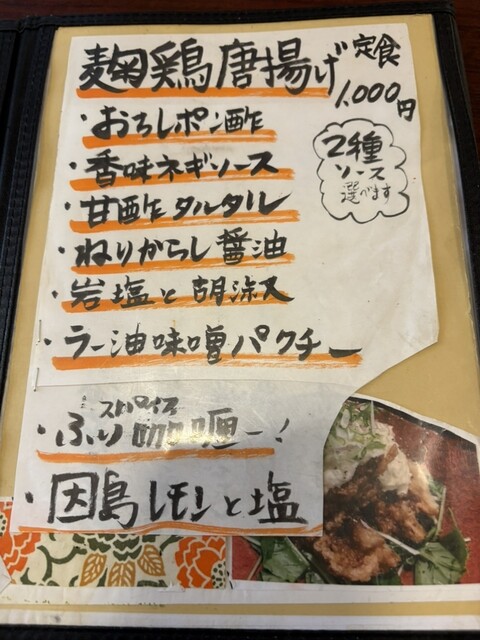 麹鶏唐揚げ定食
1,000円
・おろしポン酢
2種
ソース
選べます
・香味ネギソース
・甘酢タルタル
・ねりからし醤油
・岩塩と胡椒
・ラー油味噌パクチー
スパイス
・ふり咖喱ー!
・因島レモンと塩